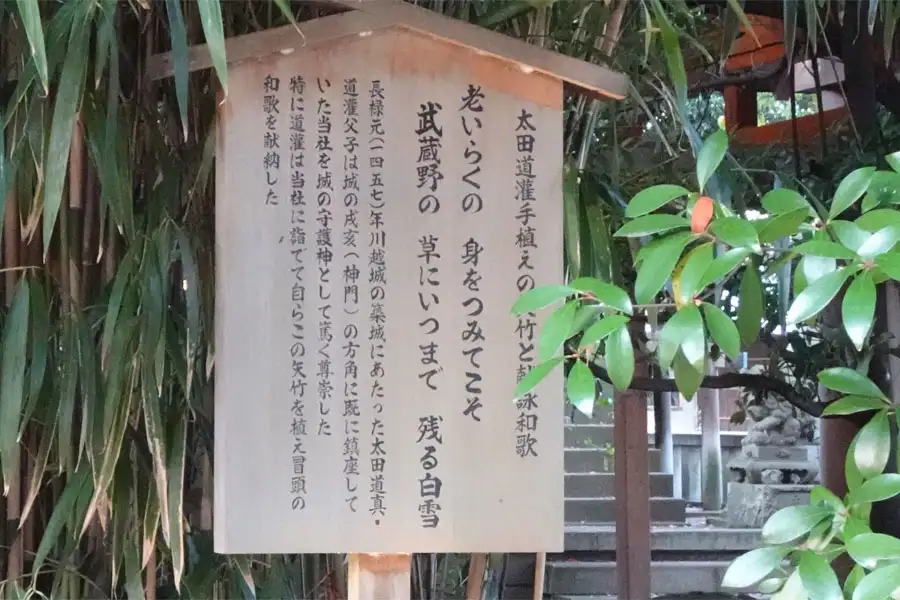 太田道灌手植えの矢竹と献詠和歌
老いらくの 身をつみてこそ
武蔵野の 草にいつまで 残る白雪
長禄元(一四五七)年川越城の築城にあたった太田道真・
道灌父子は城の戌亥(神門)の方角に既に鎮座して
いた当社を城の守護神として篤く尊崇した
特に道灌は当社に詣でて自らこの矢竹を植え冒頭の
和歌を献納した